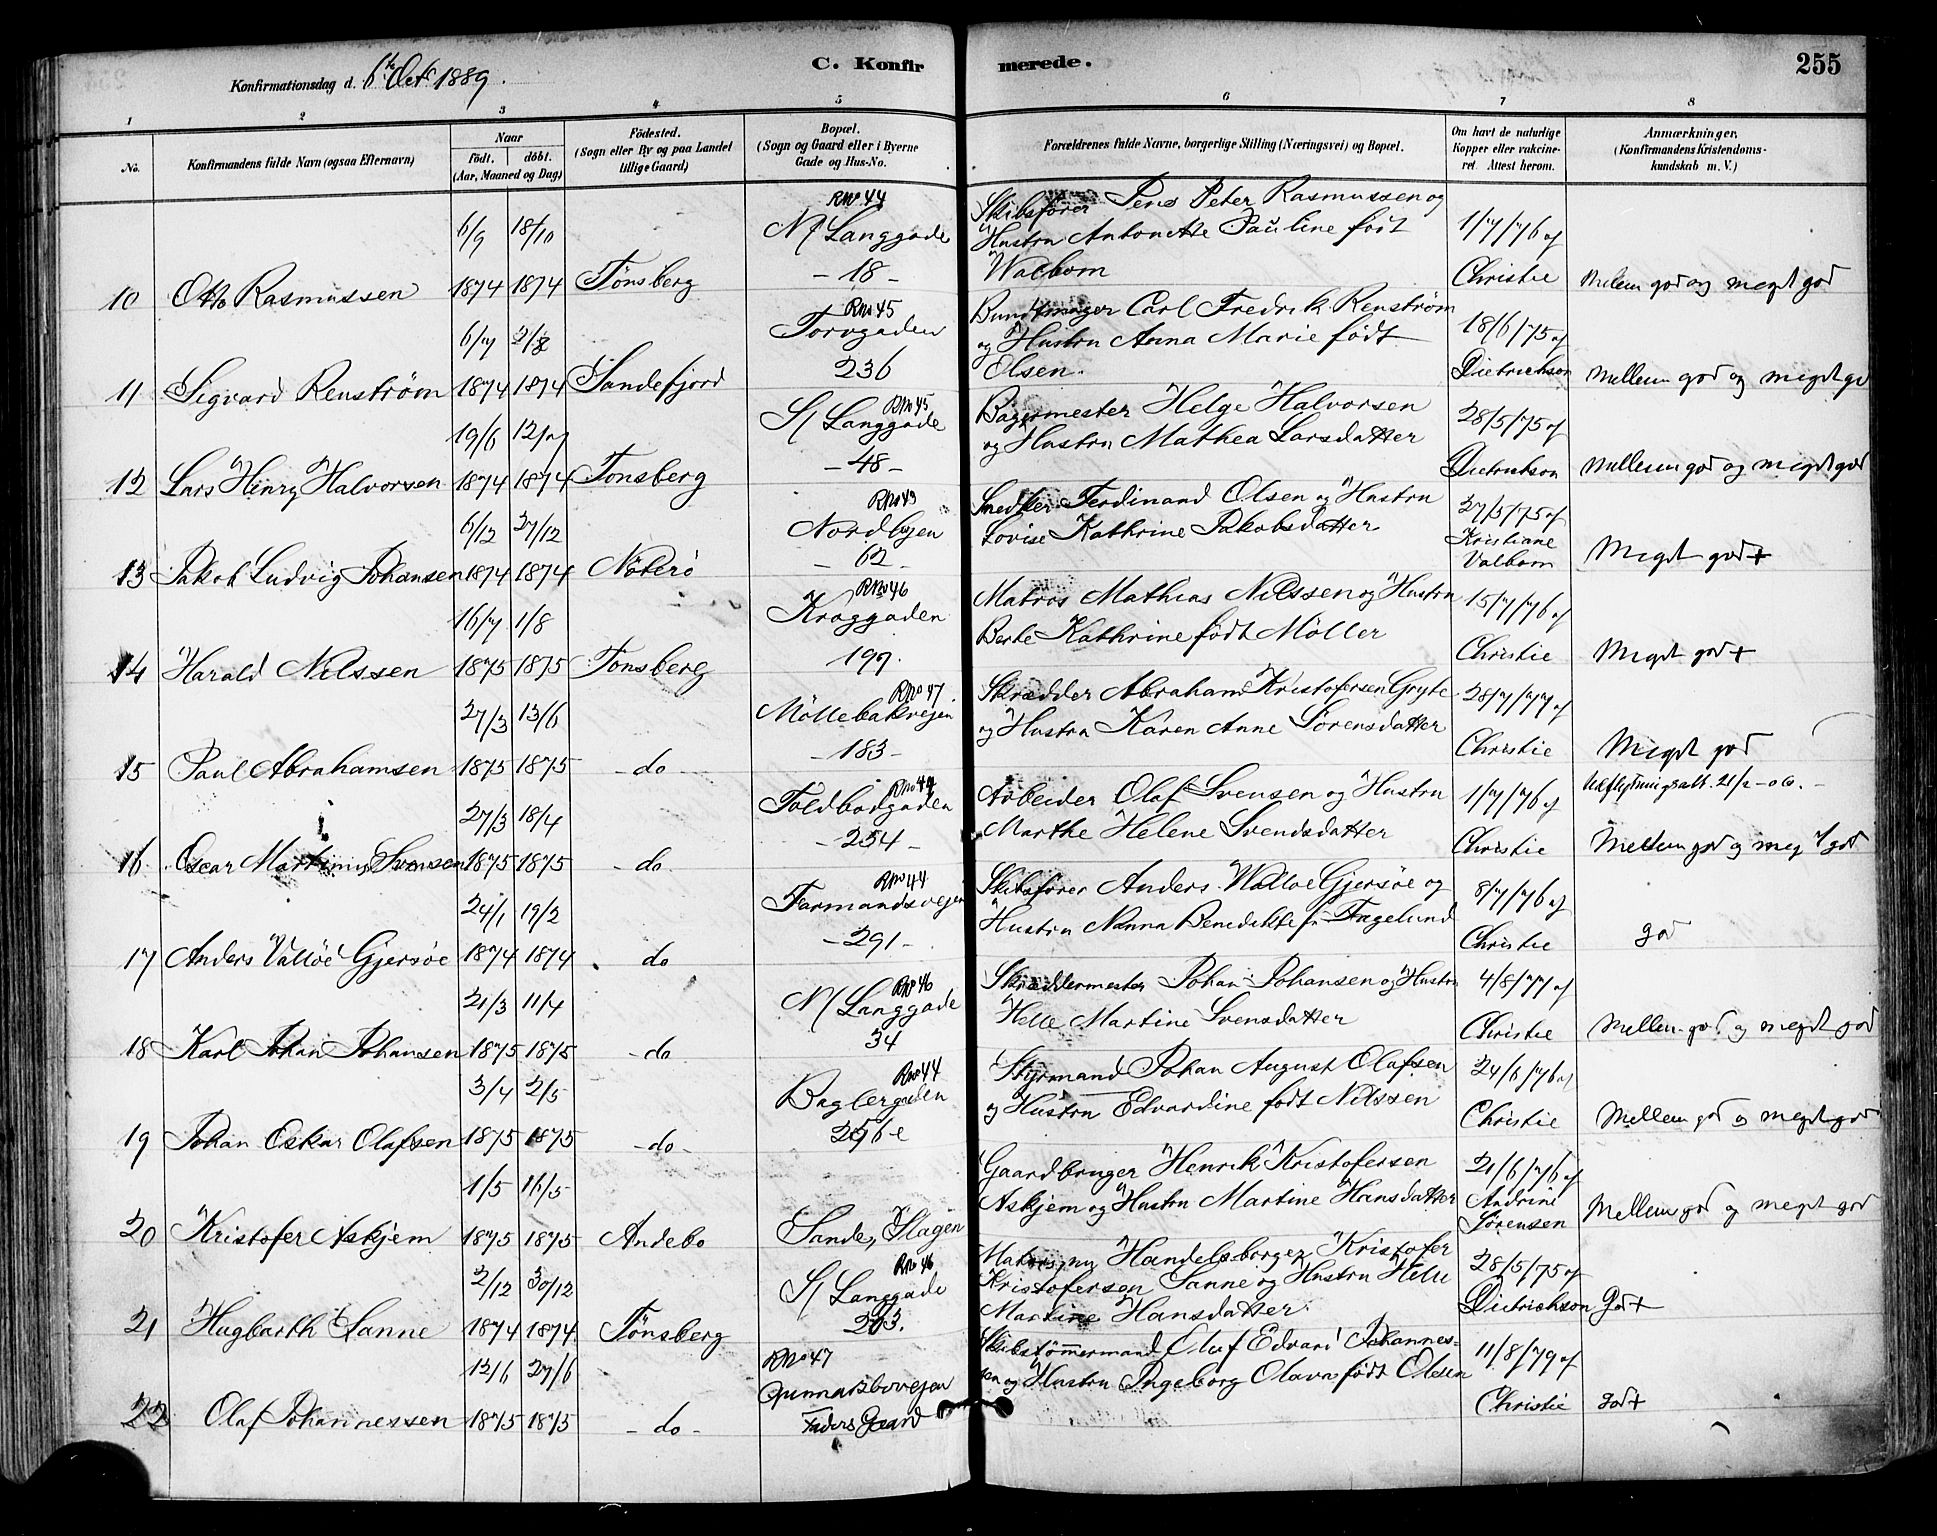 Konfirmationsdag d. 6te Oct 1889.
C. Konfirmerede.
255
1 2 3 4 5 6 7 8
No.
Konfirmandens fulde Navn (ogsaa Efternavn)
Naar
födt. döbt.
(Aar, Maaned og Dag)
Födested.
(Sogn eller By og paa Landet
tillige Gaard)
Bopæl.
(Sogn og Gaard eller i Byerne
Gade og Hus-No.
Forældrenes fulde Navne, borgerlige Stilling (Næringsvei) og Bopæl.
Om havt de naturlige
Kopper eller vakcine-
ret. Attest herom.
Anmærkninger.
(Konfirmandens Kristendoms-
kundskab m. V.)
RNo 44
6/9 18/10 N/ Langgade Skibsfører Jens Peter Rasmussen og 1/7/76 af
Hustru Antonette Pauline født
10 Otto Rasmussen 1874 1874 Tønsberg - 18 - Walbom Christie Mellem god og meget god
RNo 45
6/7 2/8 Torvgaden Bundtmager Carl Fredrik Renstrøm 18/6/75 af
og Hustru Anna Marie født
11 Sigvard Renstrøm 1874 1874 Sandefjord 236 Olsen. Dietrichson Mellem god og meget
RNo 45
19/6 12/7 S/ Langgade Bagermester Helge Halvorsen 28/5/75 af
og Hustru Mathea Larsdatter
12 Lars Henry Halvorsen 1874 1874 Tønsberg - 48 - Dietrichson Mellem god og meget god
RNo 43
6/12 27/12 Nordbyen Snedker Ferdinand Olsen og Hustru 27/5/75 af
Lovise Kathrine Jakobsdatter Kristiane
13 Jakob Ludvig Johansen 1874 1874 Nøterø - 62 - Valbom Meget god +
RNo 46
16/7 1/8 Kroggaden Matros Mathias Nilssen og Hustru 15/7/76 af
Berte Kathrine født Møller
14 Harald Nilssen 1875 1875 Tønsberg 197. Christie Meget god +
RNo 47
27/3 13/6 Möllebakvejen Skrædder Abraham Kristofersen Gryte 28/7/77 af
og Hustru Karen Anne Sörensdatter
15 Paul Abrahamsen 1875 1875 - do - - 183 - Christie Meget god
RNo 44
27/3 18/4 Toldbodgaden Arbeider Olaf Svensen og Hustru 1/7/76 af
Marthe Helene Svendsdatter
16 Oscar Martinius Svensen 1875 1875 - do. - 254 - Christie Mellem god og meget god
RNo 44
24/1 19/2 Farmandsvejen Skibsfører Anders Walløe Gjersøe og 8/7/76 af
Hustru Nanna Benedikte f. Engelund
17 Anders Valløe Gjersøe 1874 1874 do - 291 - Christie god
RNo 46
21/3 11/4 N/ Langgade Skræddermester Johan Johansen og Hustru 4/8/77 af
Helle Martine Svensdatter
18 Karl Johan Johansen 1875 1875 - do 34 Christie Mellem god og meget god
RNo 44
3/4 2/5 Baglergaden Styrmand Johan August Olafsen 24/6/76 af
og Hustru Edvardine født Nilssen
19 Johan Oskar Olafsen 1875 1875 - do - Christie Mellem god og meget god
1/5 16/5 Gaardbruger Henrik Kristofersen 21/6/76 af
Askjem og Hustru Martine Hansdatter Andrine
20 Kristofer Askjem 1875 1875 Andebo Sande, Slagen Sörensen Mellem god og meget god
RNo 46
2/12 30/12 S/ Langgade Matros, nu Handelsborger Kristofer 28/5/75 af
Kristofersen Sanne og Hustru Helle
21 Hagbarth Sanne 1874 1874. Tønsberg Martine Hansdatter. Dietrichson God +
RNo 47
12/6 27/6 Gunnarsbovejen Skibstømmermand Oluf Edvard Johannes- 11/8/79 af
sen og Hustru Ingeborg Olava født Olsen
22 Olaf Johannessen 1875 1875 - do - Faders Gaard Christie god +